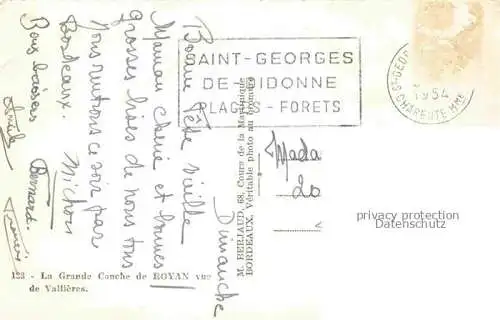 Dimanche
Bonne Fête vieille
Maman chérie et bonnes
grosses bises de nous tous
nous rentrons ce soir par
Bordeaux. Michou
Bons baisers Bernard
SAINT-GEORGES
DE-DIDONNE
PLAGES-FORETS
ST-GEOR
1954
CHARENTE MME
M. BERJAUD, 68, Cours de la Martinique
BORDEAUX. Véritable photo au bromure
Mada
privacy protection
Datenschutz
123 - La Grande Conche de ROYAN vue
de Vallières.